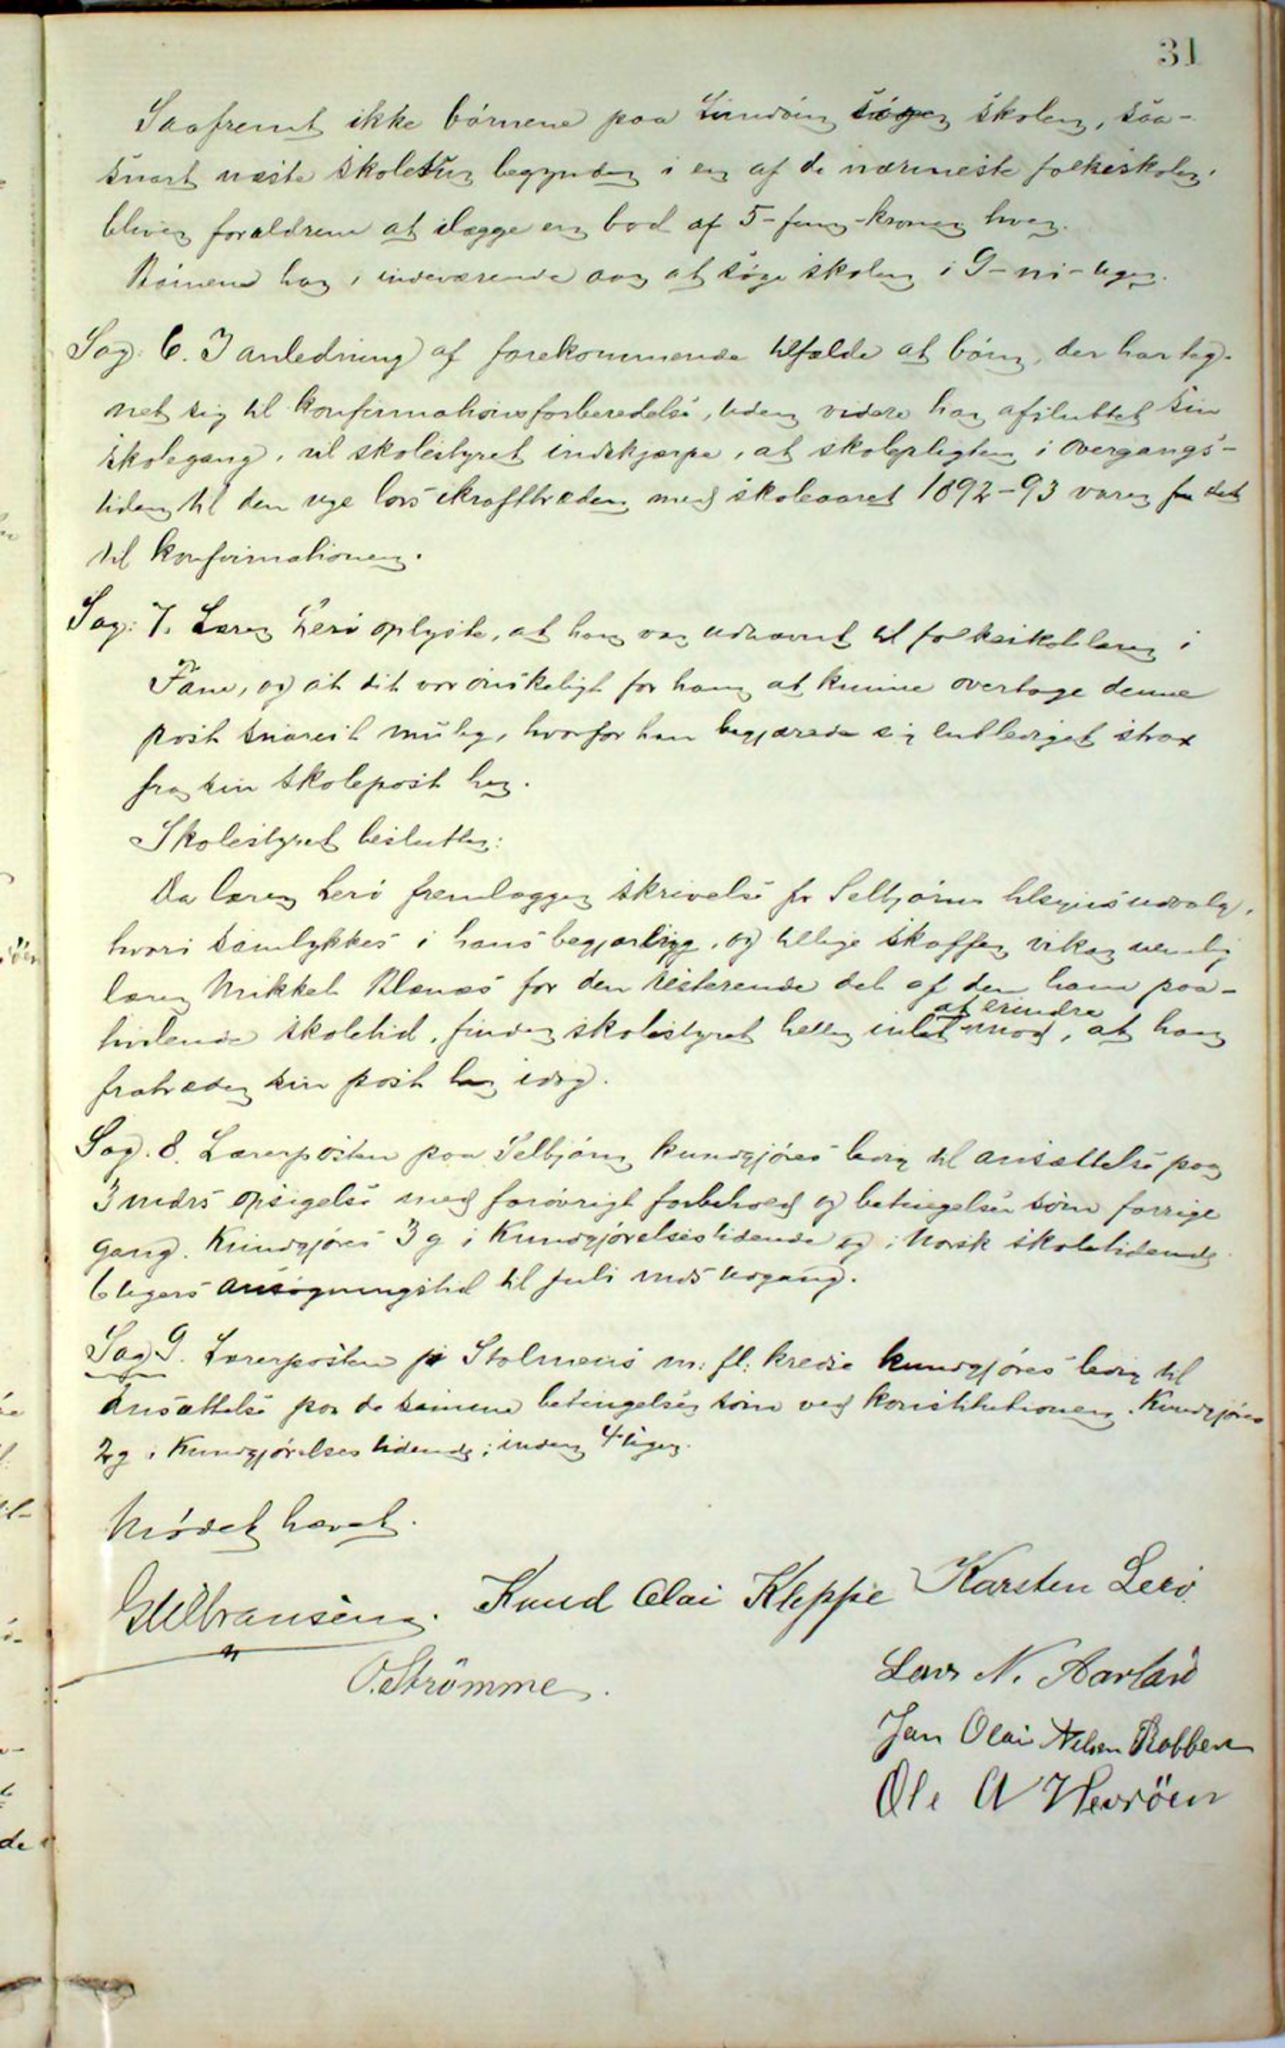 31
Saafremt ikke børnene paa Lindøen søger skolen, saa-
snart næste skoletur begynder i en af de nærmeste folkeskoler,
bliver forældrene at ilægge en bod af 5-fem-kroner hver.
Børnene har i indeværende aar at søge skolen i 9-ni-uger.
Sag: 6. I anledning af forekommende tilfælde at børn, der har teg-
net sig til konfirmationsforberedelse, uden videre har afsluttet sin
skolegang, vil skolestyret indskjærpe, at skolepligten i overgangs-
tiden til den nye lovs ikrafttræden med skoleaaret 1892-93 varer
til konfirmationen.
Sag: 7. Lærer Lerø oplyste, at han var udnævnt til folkeskolelærer i
Fane, og at det var ønskeligt for ham at kunne overtage denne
post snarest mulig, hvorfor han begjærede sig entlediget strax
fra sin skolepost her.
Skolestyret beslutter:
Da lærer Lerø fremlægger skrivelse fr Selbjørns tilsynsudvalg,
hvori samtykkes i hans begjæring, og tillige skaffer vikar nemlig
lærer Mikkel Blænes for den resterende del af den ham paa-
hvilende skoletid, finder skolestyret heller intet at erindre mod, at han
fratræder sin post her idag.
Sag. 8. Lærerposten paa Selbjørn kundgjøres ledig til ansættelse paa
3 mdrs opsigelse med forøvrigt forbehold og betingelser som forrige
gang. Kundgjøres 3 g i Kundgjørelsestidende og i Norsk skoletidende
6 ugers ansøgningstid til juli mds udgang.
Sag 9. Lærerposten i Stolmens m: fl: kredse kundgjøres ledig til
ansættelse paa de samme betingelser som ved konstitutionen. Kundgjøres
2 g i Kundgjørelsestidende; inden 4 uger.
Mødet hævet.
Knud Olai Kleppe Karsten Lerø
O. Strömme.
Lars N. Aarland
Jan Olai Nelsen Robben
Ole A Hevröen